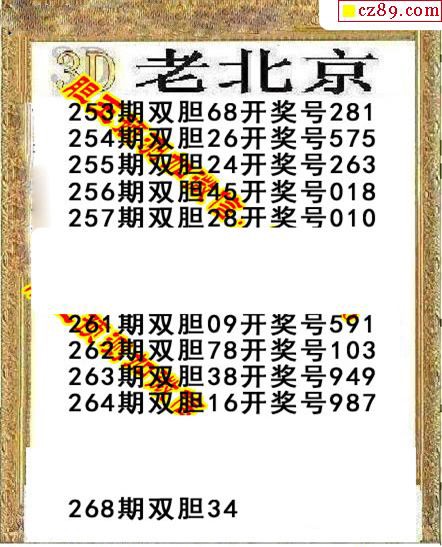 cz89.com
3D 老北京
253期双胆68开奖号281
254期双胆26开奖号575
255期双胆24开奖号263
256期双胆45开奖号018
257期双胆28开奖号010
261期双胆09开奖号591
262期双胆78开奖号103
263期双胆38开奖号949
264期双胆16开奖号987
268期双胆34